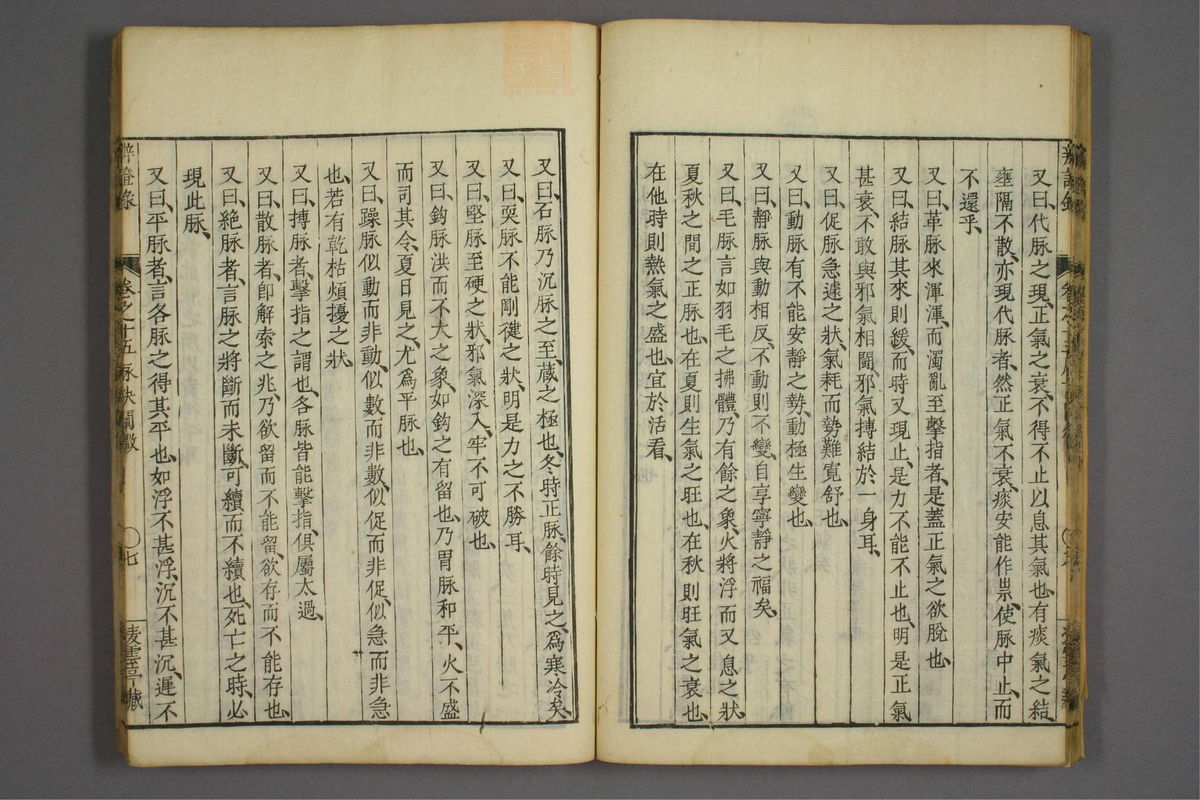 又曰代脉之現、正氣之衰、不得不止以息其氣也、有痰氣之結
壅隔不散、亦現代脉者、然正氣不衰、痰安能作祟、使脉中止、而
不還乎、
又曰革脉來渾渾、而濁亂至擊指者、是蓋正氣之欲脫也、
又曰結脉其來則緩、而時又現止、是力不能不止也、明是正氣
甚衰、不敢與邪氣相鬪、邪氣搏結於一身耳、
又曰促脉急遽之狀、氣耗而勢難寬舒也、
又曰動脉有不能安靜之勢、動極生變也、
又曰靜脉與動相反、不動則不變、自享寧靜之福矣、
又曰毛脉言如羽毛之拂體、乃有餘之象、火將浮而又息之狀、
夏秋之間之正脉也、在夏則生氣之旺也、在秋則旺氣之衰也、
在他時則熱氣之盛也、宜於活看、
又曰石脉乃沉脉之至、藏之極也、冬時正脉、餘時見之、爲寒冷矣、
又曰耎脉不能剛健之狀、明是力之不勝耳、
又曰堅脉至硬之狀、邪氣深入、牢不可破也、
又曰鈎脉洪而不大之象、如鈎之有留也、乃胃脉和平、火不盛
而司其令、夏日見之、尤爲平脉也、
又曰躁脉似動而非動、似數而非數、似促而非促、似急而非急
也、若有乾枯煩擾之狀
又曰搏脉者、擊指之謂也、各脉皆能擊指、俱屬太過、
又曰散脉者、卽解索之兆、乃欲留而不能留、欲存而不能存也、
又曰絕脉者、言脉之將斷而未斷、可續而不續也、死亡之時、必
現此脉、
又曰平脉者、言各脉之得其平也、如浮不甚浮、沉不甚沉、遲不
辨證錄 卷之十五 脉訣闡微 七